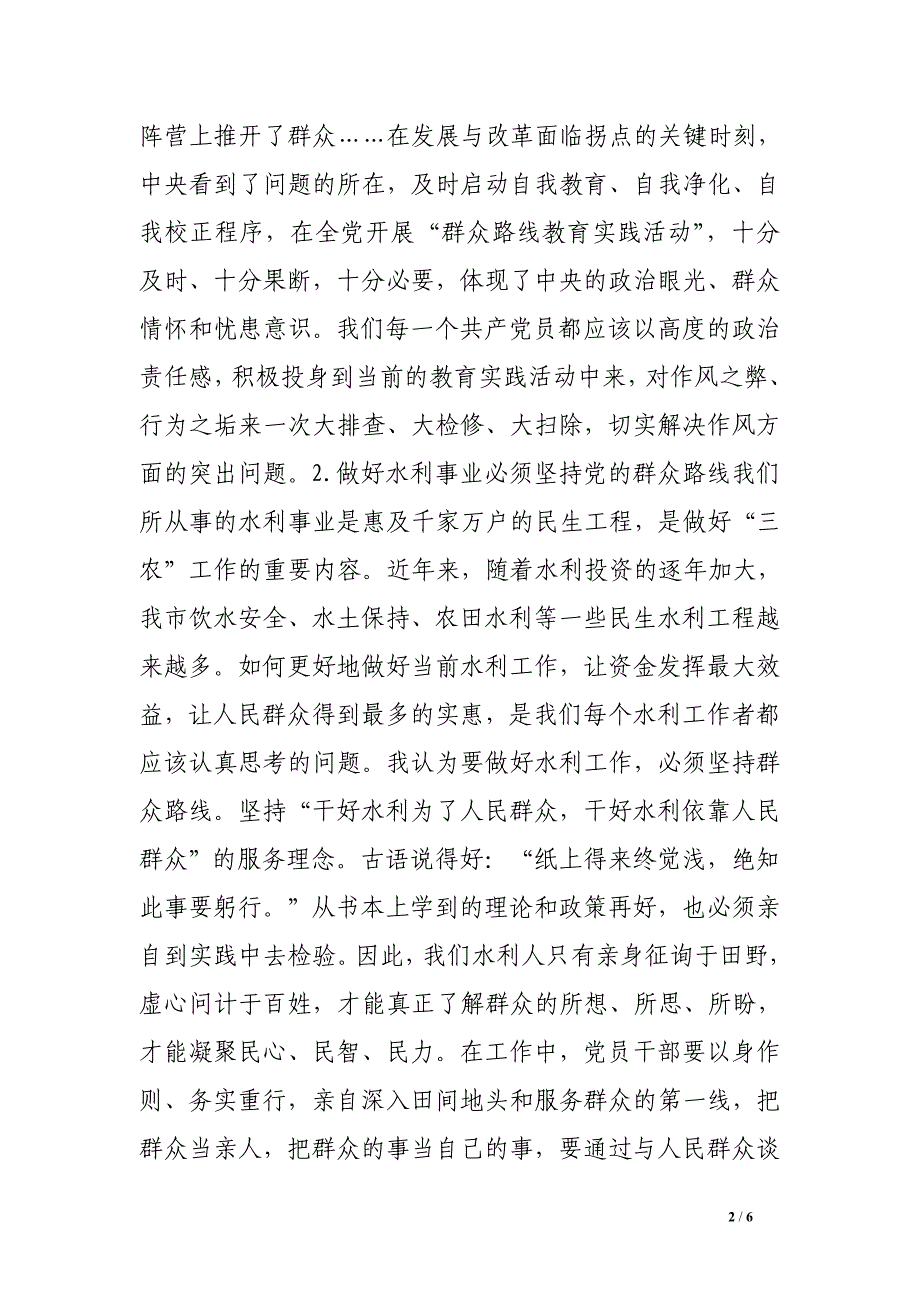 阵营上推开了群众……在发展与改革面临拐点的关键时刻，
中央看到了问题的所在，及时启动自我教育、自我净化、自
我校正程序，在全党开展“群众路线教育实践活动”，十分
及时、十分果断，十分必要，体现了中央的政治眼光、群众
情怀和忧患意识。我们每一个共产党员都应该以高度的政治
责任感，积极投身到当前的教育实践活动中来，对作风之弊、
行为之垢来一次大排查、大检修、大扫除，切实解决作风方
面的突出问题。2.做好水利事业必须坚持党的群众路线我们
所从事的水利事业是惠及千家万户的民生工程，是做好“三
农”工作的重要内容。近年来，随着水利投资的逐年加大，
我市饮水安全、水土保持、农田水利等一些民生水利工程越
来越多。如何更好地做好当前水利工作，让资金发挥最大效
益，让人民群众得到最多的实惠，是我们每个水利工作者都
应该认真思考的问题。我认为要做好水利工作，必须坚持群
众路线。坚持“干好水利为了人民群众，干好水利依靠人民
群众”的服务理念。古语说得好：“纸上得来终觉浅，绝知
此事要躬行。”从书本上学到的理论和政策再好，也必须亲
自到实践中去检验。因此，我们水利人只有亲身征询于田野，
虚心问计于百姓，才能真正了解群众的所想、所思、所盼，
才能凝聚民心、民智、民力。在工作中，党员干部要以身作
则、务实重行，亲自深入田间地头和服务群众的第一线，把
群众当亲人，把群众的事当自己的事，要通过与人民群众谈
2 / 6